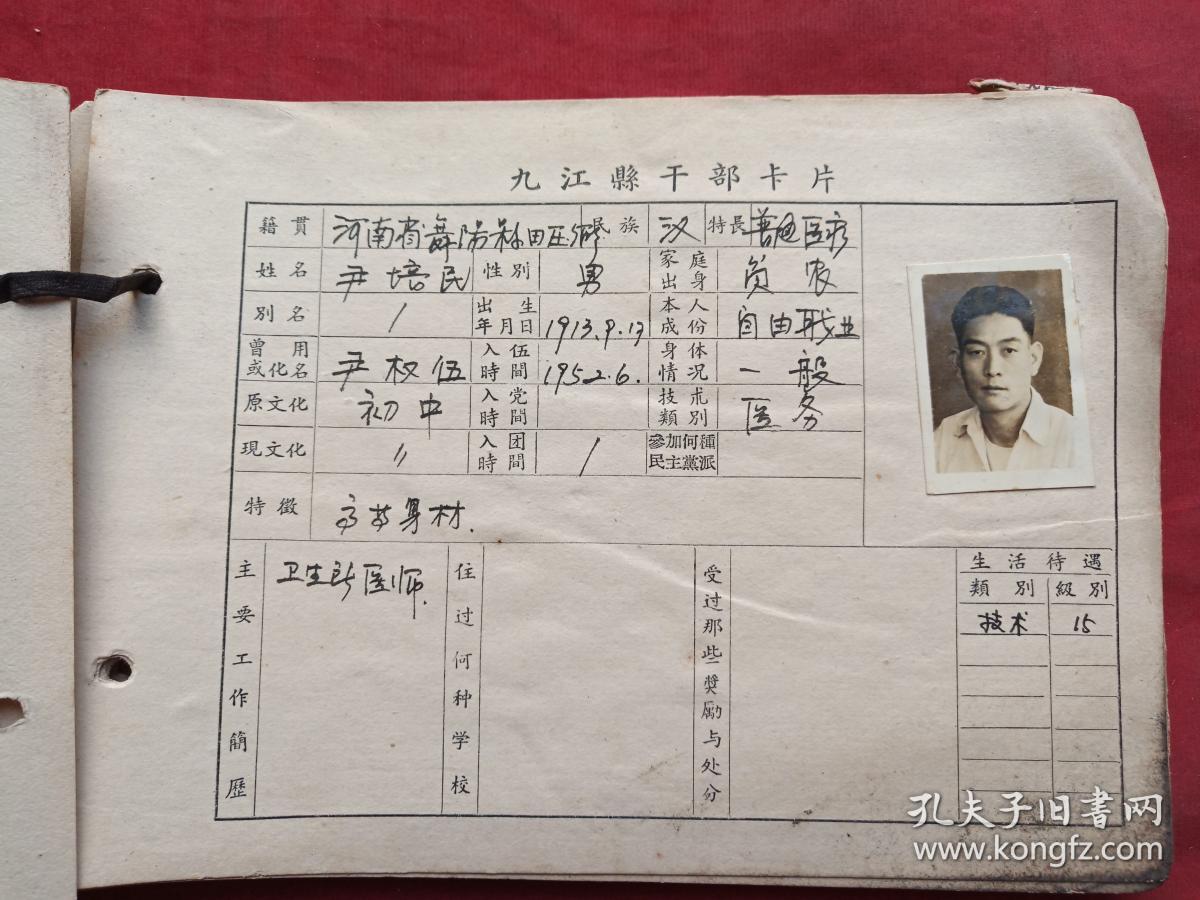 九江縣干部卡片
籍貫 河南省舞阳 田 民族 汉 特長 普通医疗
姓名 尹培民 性别 男 家庭出身 贫农
别名 / 出生年月日 1913.9.17 本人成份 自由职业
曾用或化名 尹权伍 入伍時間 1952.6. 身体情况 一般
原文化 初中 入党時間 技术類别 医务
現文化 〃 入团時間 / 參加何種民主黨派
特徵 高 身材.
主要工作簡歷 卫生所医师. 住过何种学校 受过那些獎励与处分 生活待遇
類别 級别
技术 15
孔夫子旧書网
www.kongfz.com